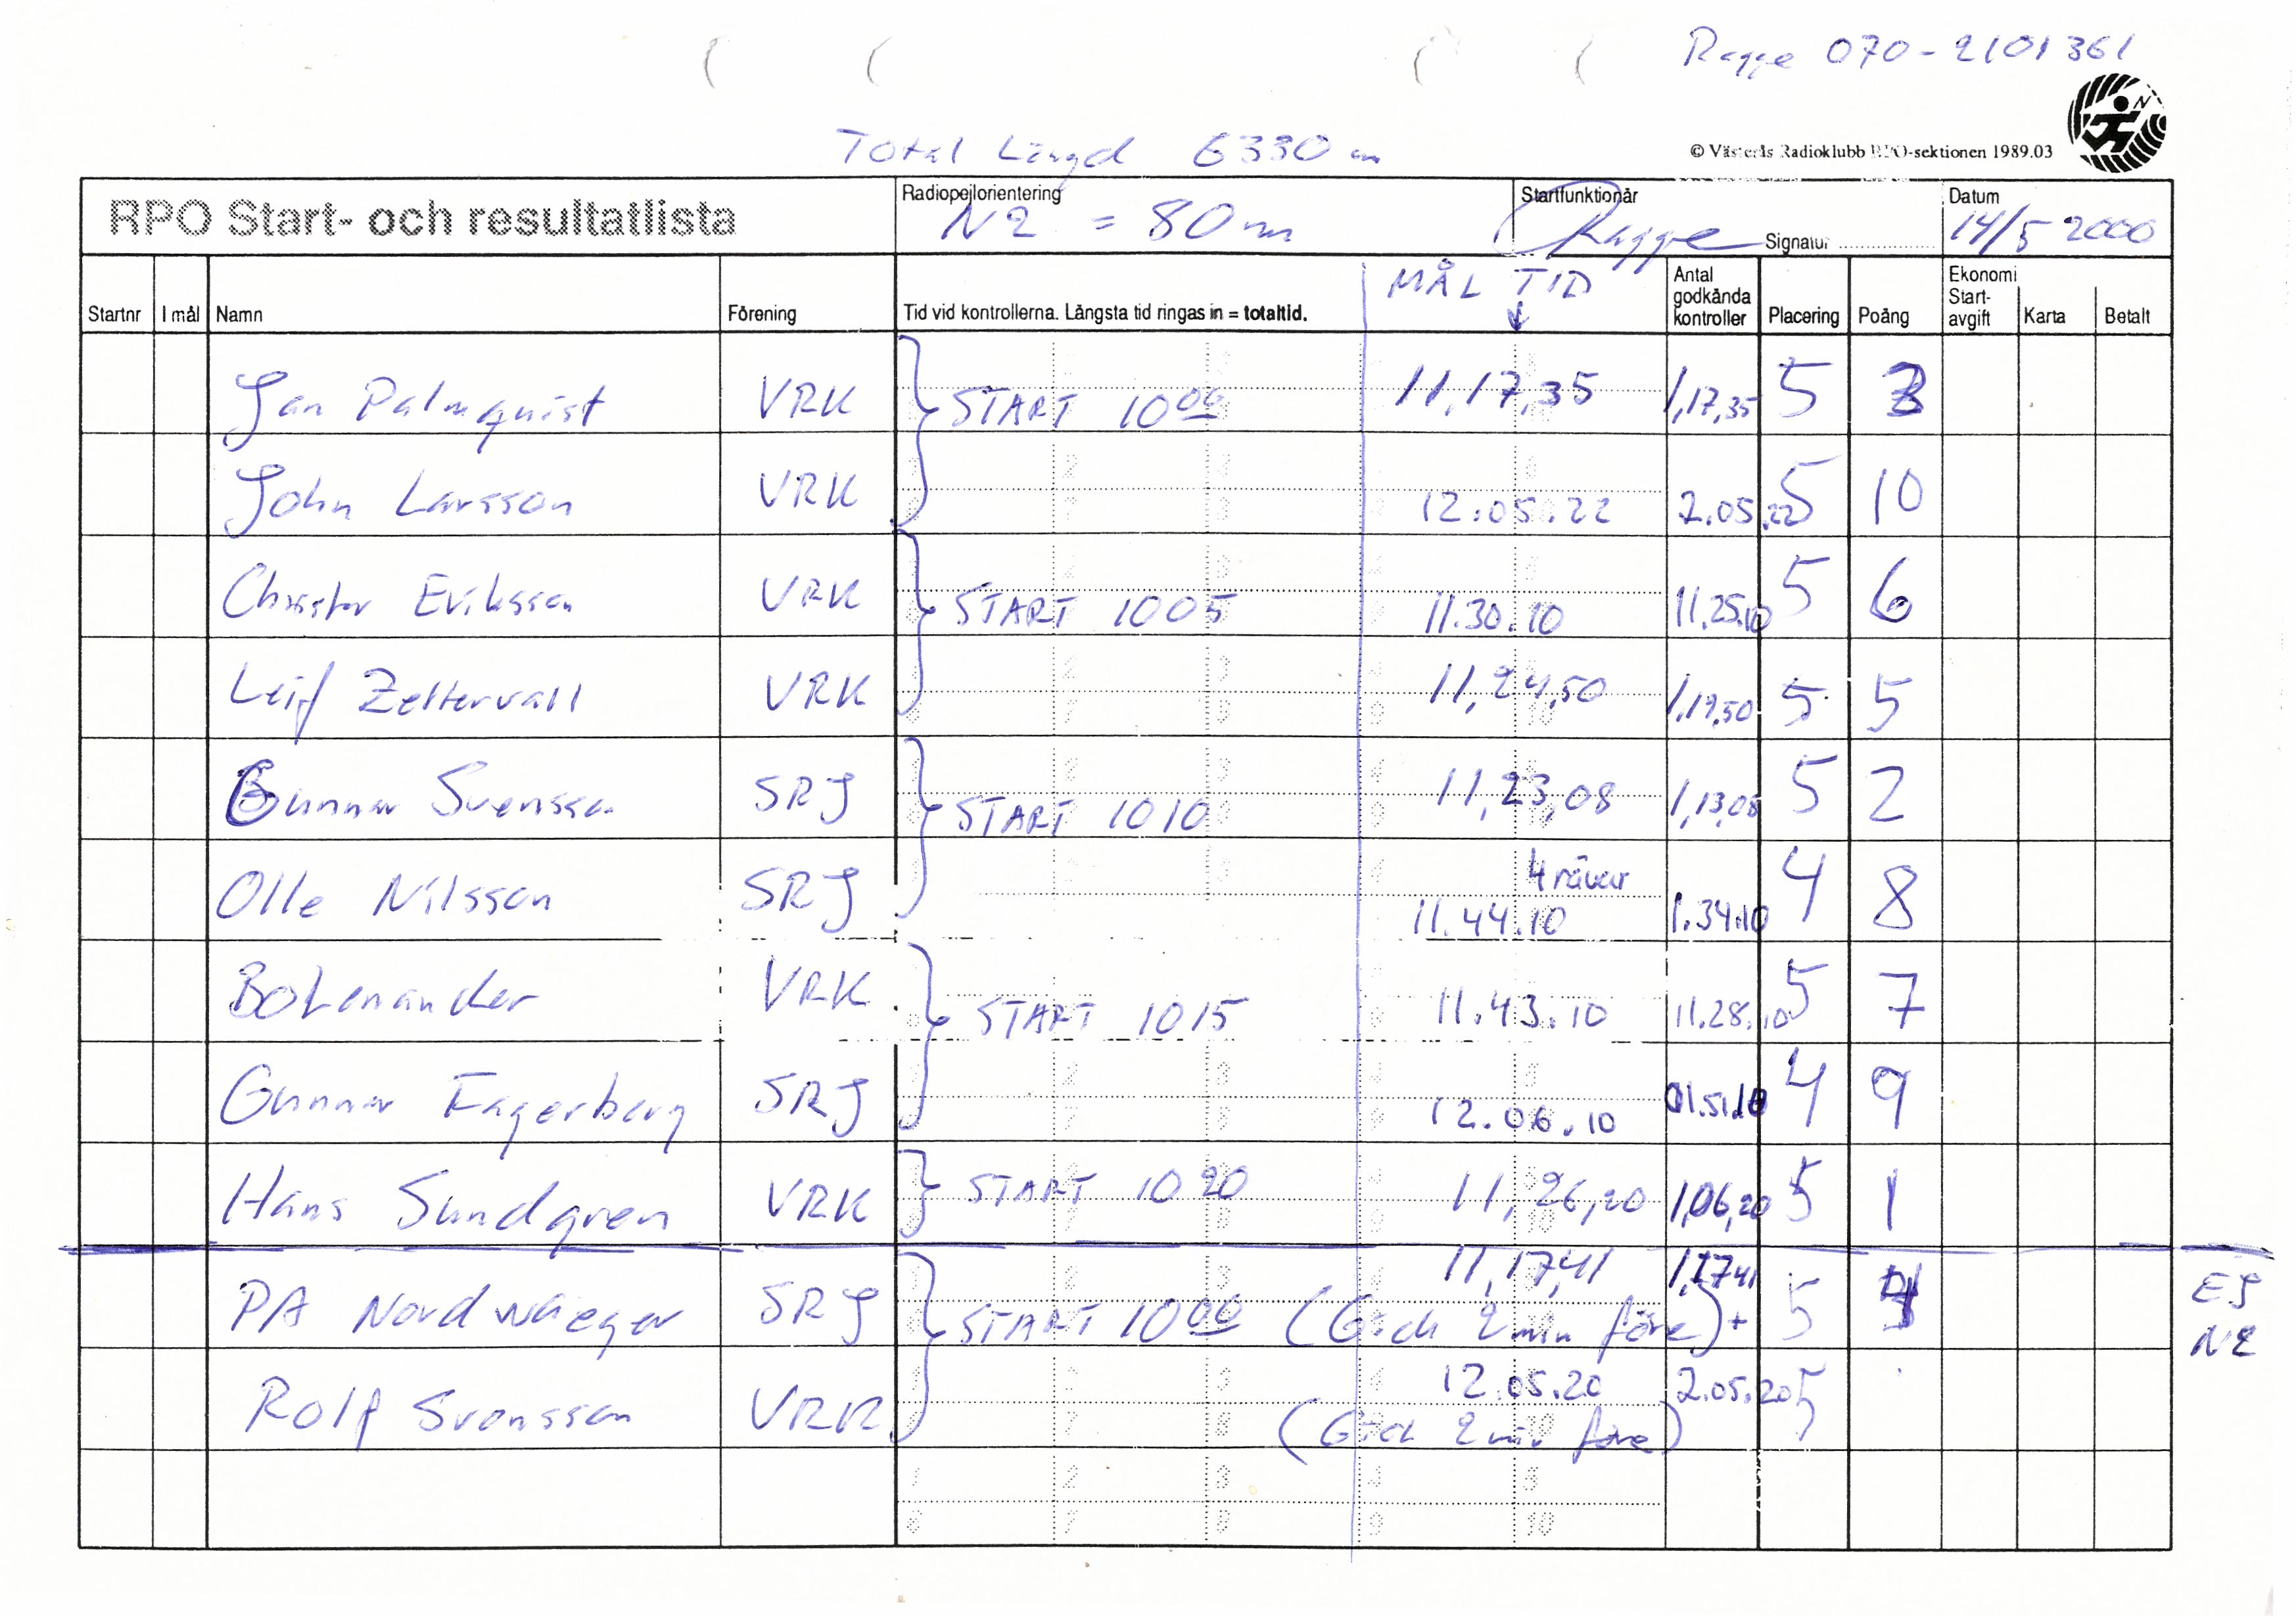 Ragge 070-2101361
Total Längd 6330 m
© Västerås Radioklubb RPO-sektionen 1989.03
RPO Start- och resultatlista
Radiopejlorientering
N2 = 80m
Startfunktionär
Ragge Signatur
Datum
14/5 2000
Startnr I mål Namn Förening Tid vid kontrollerna. Längsta tid ringas in = totaltid. MÅL TID Antal godkända kontroller Placering Poäng Ekonomi Start-avgift Karta Betalt
Jan Palmquist VRK START 10 00 11,17,35 1,17,35 5 3
John Larsson VRK 12.05.22 2.05.22 5 10
Christer Eriksson VRK START 10 05 11.30.10 11.25.10 5 6
Leif Zettervall VRK 11,24,50 1,19,50 5 5
Gunnar Svensson SRJ START 10 10 11,23,08 1,13,08 5 2
Olle Nilsson SRJ 4 rävar 11.44.10 1.34.10 4 8
Bo Lenander VRK START 10 15 11.43.10 11.28.10 5 7
Gunnar Fagerberg SRJ 12.06.10 01.51.10 4 9
Hans Sundgren VRK START 10 20 11,26,20 1,06,20 5 1
PA Nordwaeger SRJ START 10 00 (Gick 2 min före) + 11,17,41 1,17,41 5 4 EJ N2
Rolf Svensson VRK 12.05.20 (Gick 2 min före) 2.05.20 5
1 2 3 4 5
6 7 8 9 10